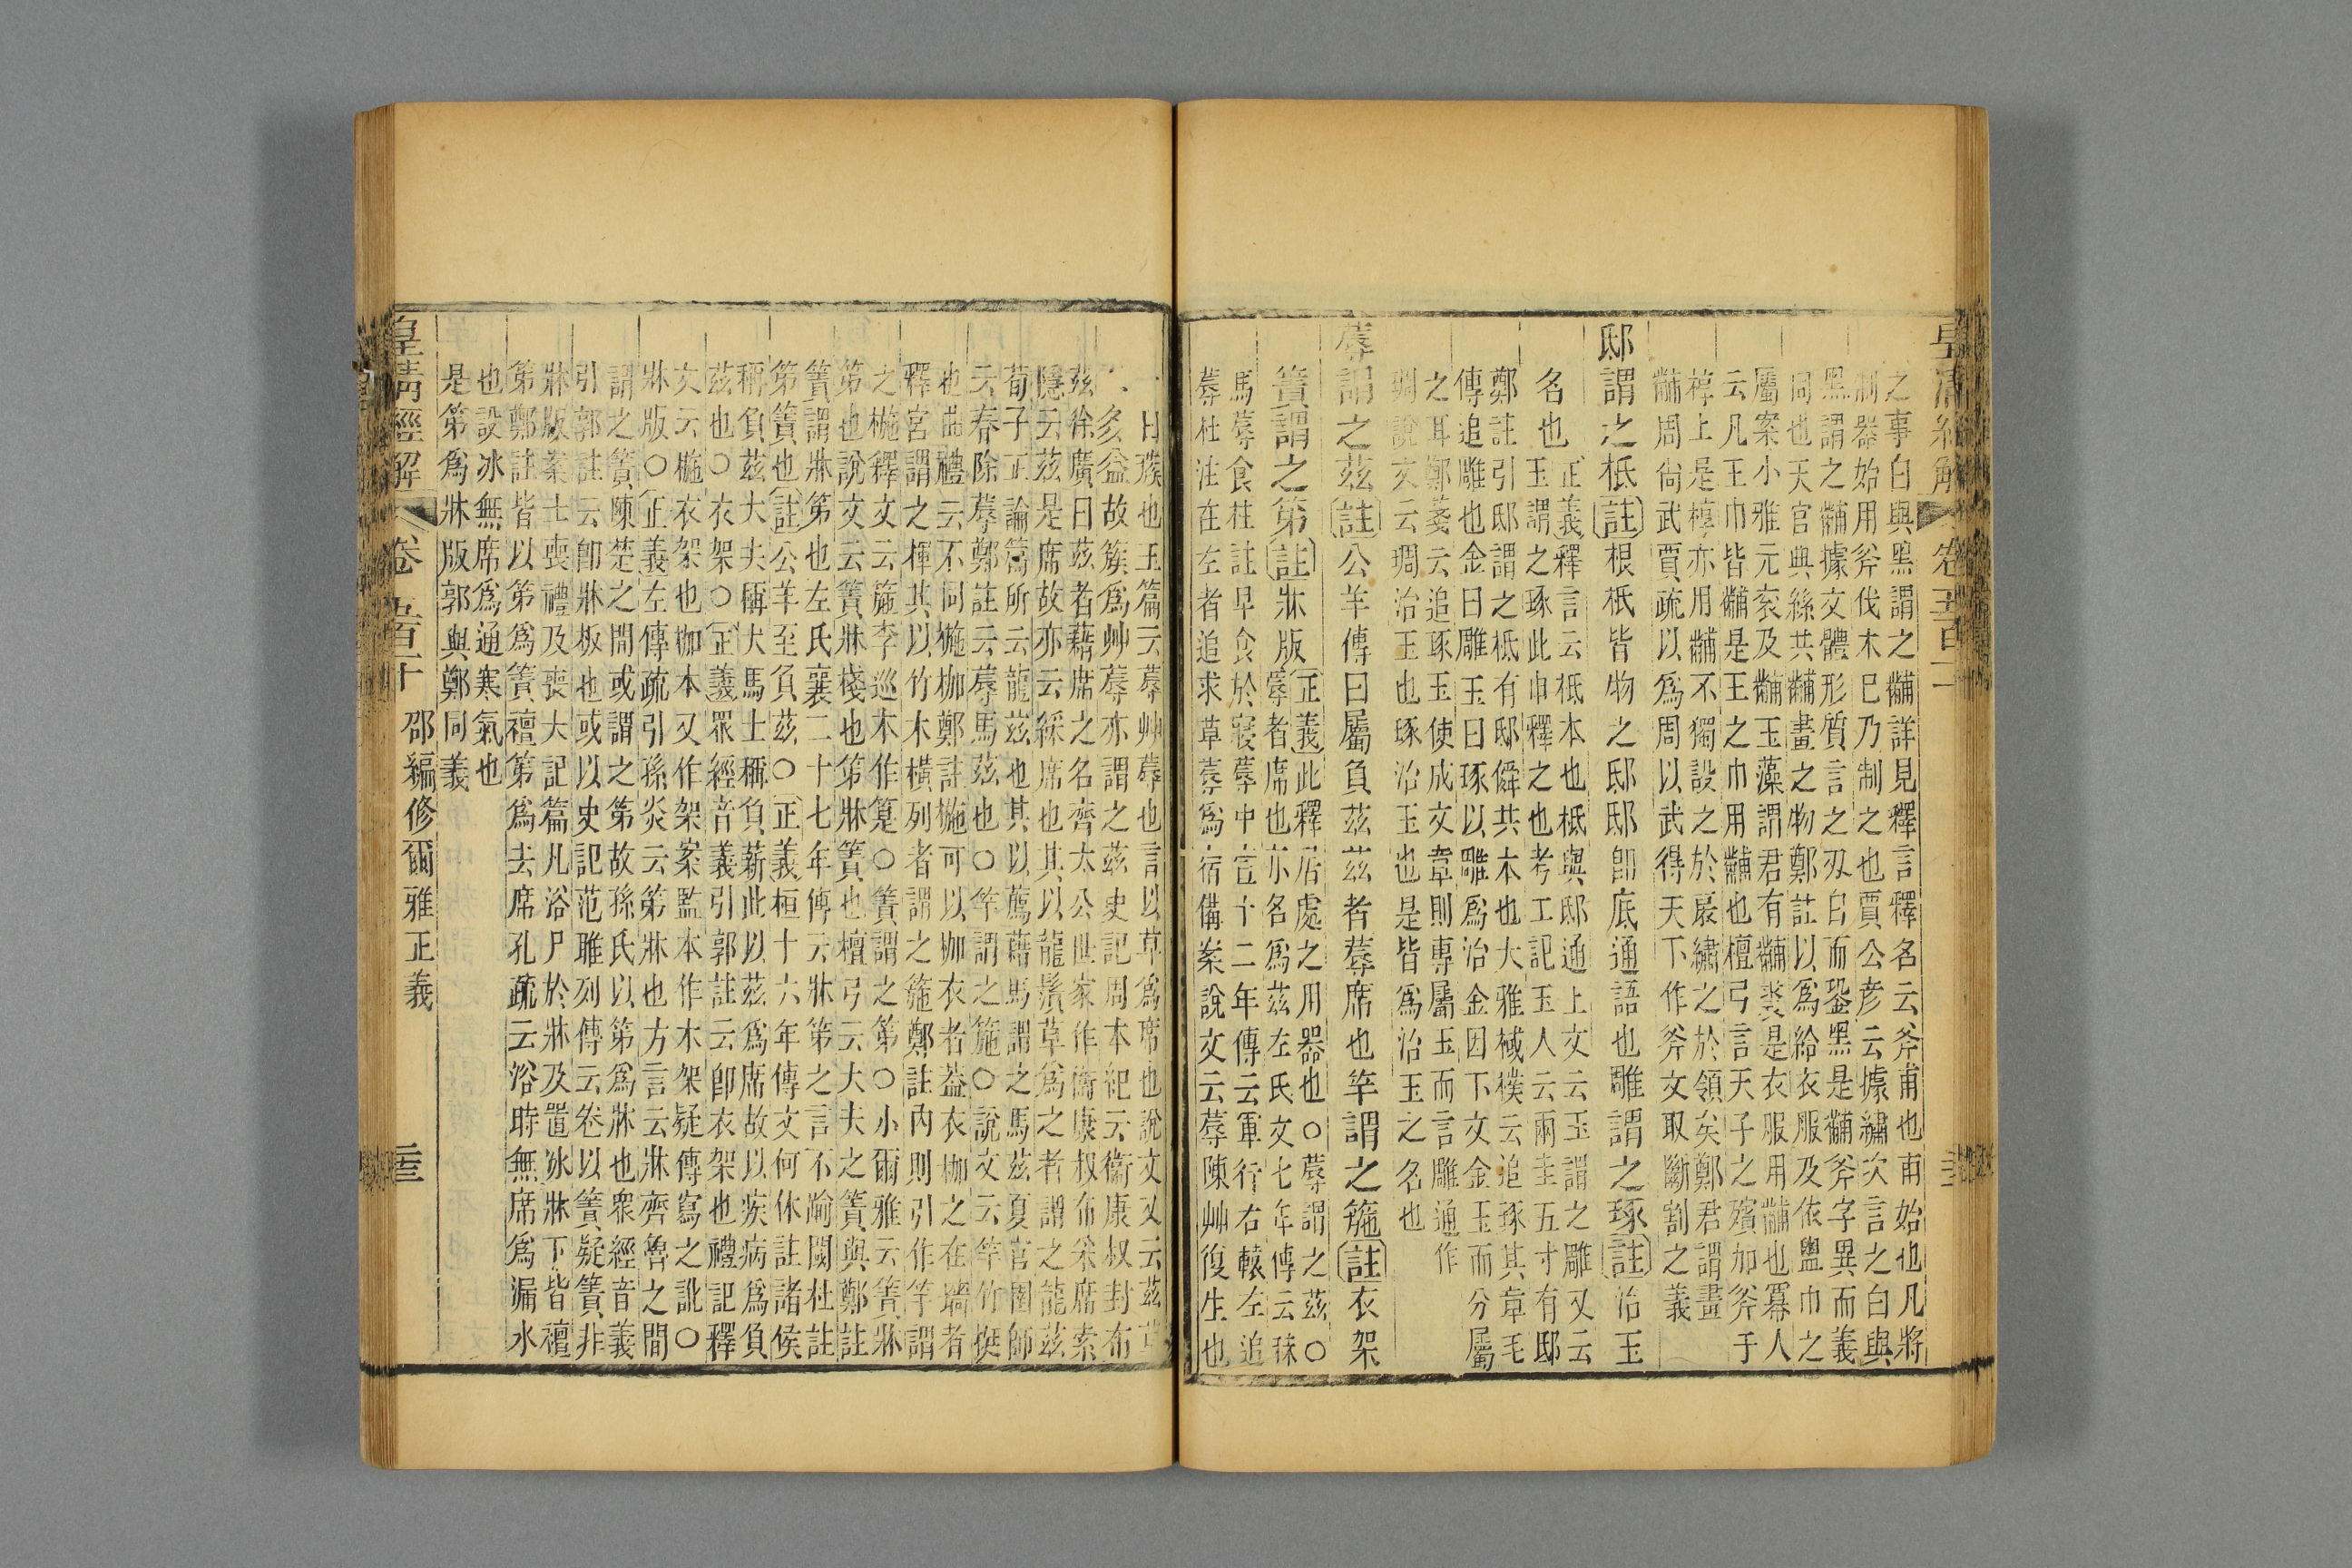 之事白與黑謂之黼詳見釋言釋名云斧甫也甫始也凡將
制器始用斧伐木已乃制之也賈公彥云據繡次言之白與
黑謂之黼據文體形質言之刃白而銎黑是黼斧字異而義
同也天官典絲共黼畫之物鄭註以爲給衣服及依盥巾之
屬案小雅元衮及黼玉藻謂君有黼裘是衣服用黼也冪人
云凡王巾皆黼是王之巾用黼也檀弓言天子之殯加斧于
椁上是椁亦用黼不獨設之於扆繡之於領矣鄭君謂畫
黼周尙武賈疏以爲周以武得天下作斧文取斷割之義
邸謂之柢註根柢皆物之邸邸卽底通語也雕謂之琢註治玉
名也正義釋言云柢本也柢與邸通上文云玉謂之雕又云
玉謂之琢此申釋之也考工記玉人云兩圭五寸有邸
鄭註引邸謂之柢有邸僢共本也大雅棫樸云追琢其章毛
傳追雕也金曰雕玉曰琢以雕爲治金因下文金玉而分屬
之耳鄭箋云追琢玉使成文章則專屬玉而言雕通作
琱說文云琱治玉也琢治玉也是皆爲治玉之名也
蓐謂之茲註公羊傳曰屬負茲茲者蓐席也竿謂之箷註衣架
簀謂之第註牀版正義此釋居處之用器也○蓐謂之茲○
蓐者席也亦名爲茲左氏文七年傳云秣
馬蓐食杜註早食於寢蓐中宣十二年傳云軍行右轅左追
蓐杜注在左者追求草蓐爲宿備案說文云蓐陳艸復生也
一曰蔟也玉篇云蓐艸蓐也言以草爲席也說文又云茲草
木多益故蔟爲艸蓐亦謂之茲史記周本紀云衞康叔封布
茲徐廣曰茲者藉席之名齊太公世家作衞康叔布采席索
隱云茲是席故亦云綵席也其以龍鬚草爲之者謂之龍茲
荀子正論篇所云龍茲也其以薦藉馬謂之馬茲夏官圉師
云春除蓐鄭註云蓐馬茲也○竿謂之箷○說文云竿竹梃
也曲禮云不同椸枷鄭註椸可以枷衣者葢衣枷之在牆者
釋宮謂之楎其以竹木橫列者謂之箷鄭註內則引作竿謂
之椸釋文云箷李巡本作篗○簀謂之第○小爾雅云簀牀
第也說文云簀牀棧也第牀簀也檀弓云大夫之簀與鄭註
簀謂牀第也左氏襄二十七年傳云牀第之言不踰閾杜註
第簀也註公羊至負茲○正義桓十六年傳文何休註諸侯
稱負茲大夫稱犬馬士稱負薪此以茲爲席故以疾病爲負
茲也○衣架○正義眾經音義引郭註云卽衣架也禮記釋
文云椸衣架也枷本又作架案監本作木架疑傳寫之訛○
牀版○正義左傳疏引孫炎云第牀也方言云牀齊魯之間
謂之簀陳楚之間或謂之第故孫氏以第爲牀也眾經音義
引郭註云卽牀板也或以史記范雎列傳云卷以簀疑簀非
牀版案士喪禮及喪大記篇凡浴尸於牀及置冰牀下皆襢
第鄭註皆以第爲簀襢第爲去席孔疏云浴時無席爲漏水
也設冰無席爲通寒氣也
是第爲牀版郭與鄭同義
皇清經解 卷五百十 邵編修爾雅正義 三